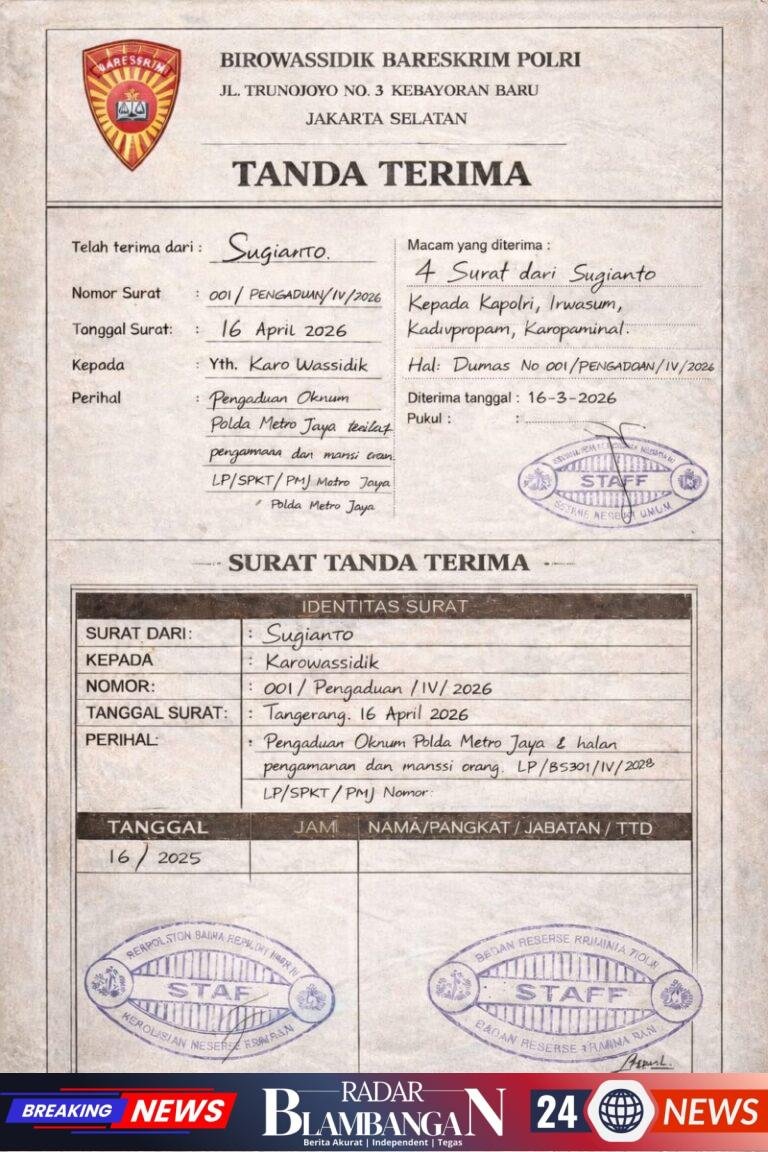 BARESSRIM
BIROWASSIDIK BARESKRIM POLRI
JL. TRUNOJOYO NO. 3 KEBAYORAN BARU
JAKARTA SELATAN
TANDA TERIMA
Telah terima dari : Sugianto.
Nomor Surat : 001/ PENGADUAN/IV/2026
Tonggal Surat: : 16 April 2026
Kepada : Yth. Karo Wassidik
Perihal : Pengaduan Oknum
Polda Metro Jaya
pengamaaa dan mansi
LP/SPKT/PMJ Motro Jaya
Polda Metro Jaya
Macam yang diterima :
4 Surat dari Sugianto
Kepada Kapolri, Irwasum,
Kadivpropam, Karopaminal.
Hal: Dumas No 001/PENGADOAN/IV/2026
Diterima tanggal : 16-3-2026
Pukul : :
STAFF
SURAT TANDA TERIMA
IDENTITAS SURAT
SURAT DARI: : Sugianto
KEPADA : Karowassidik
NOMOR: : 001/ Pengaduan /IV/ 2026
TANGGAL SURAT: : Tangerang. 16 April 2026
PERIHAL: : Pengaduan Oknum Polda Metro Jaya & halan
pengamanan dan manssi orang. LP/B5301/IV/2028
LP/SPKT/PMJ Nomor:
TANGGAL JAMI NAMA/PANGKAT / JABATAN / TTD
16/ 2025
STAF
BEDAN RESERSE
STAFF
BADAN RESERSE
BREAKING NEWS
RADAR
BLAMBANGAN
Berita Akurat | Independent | Tegas
24 NEWS